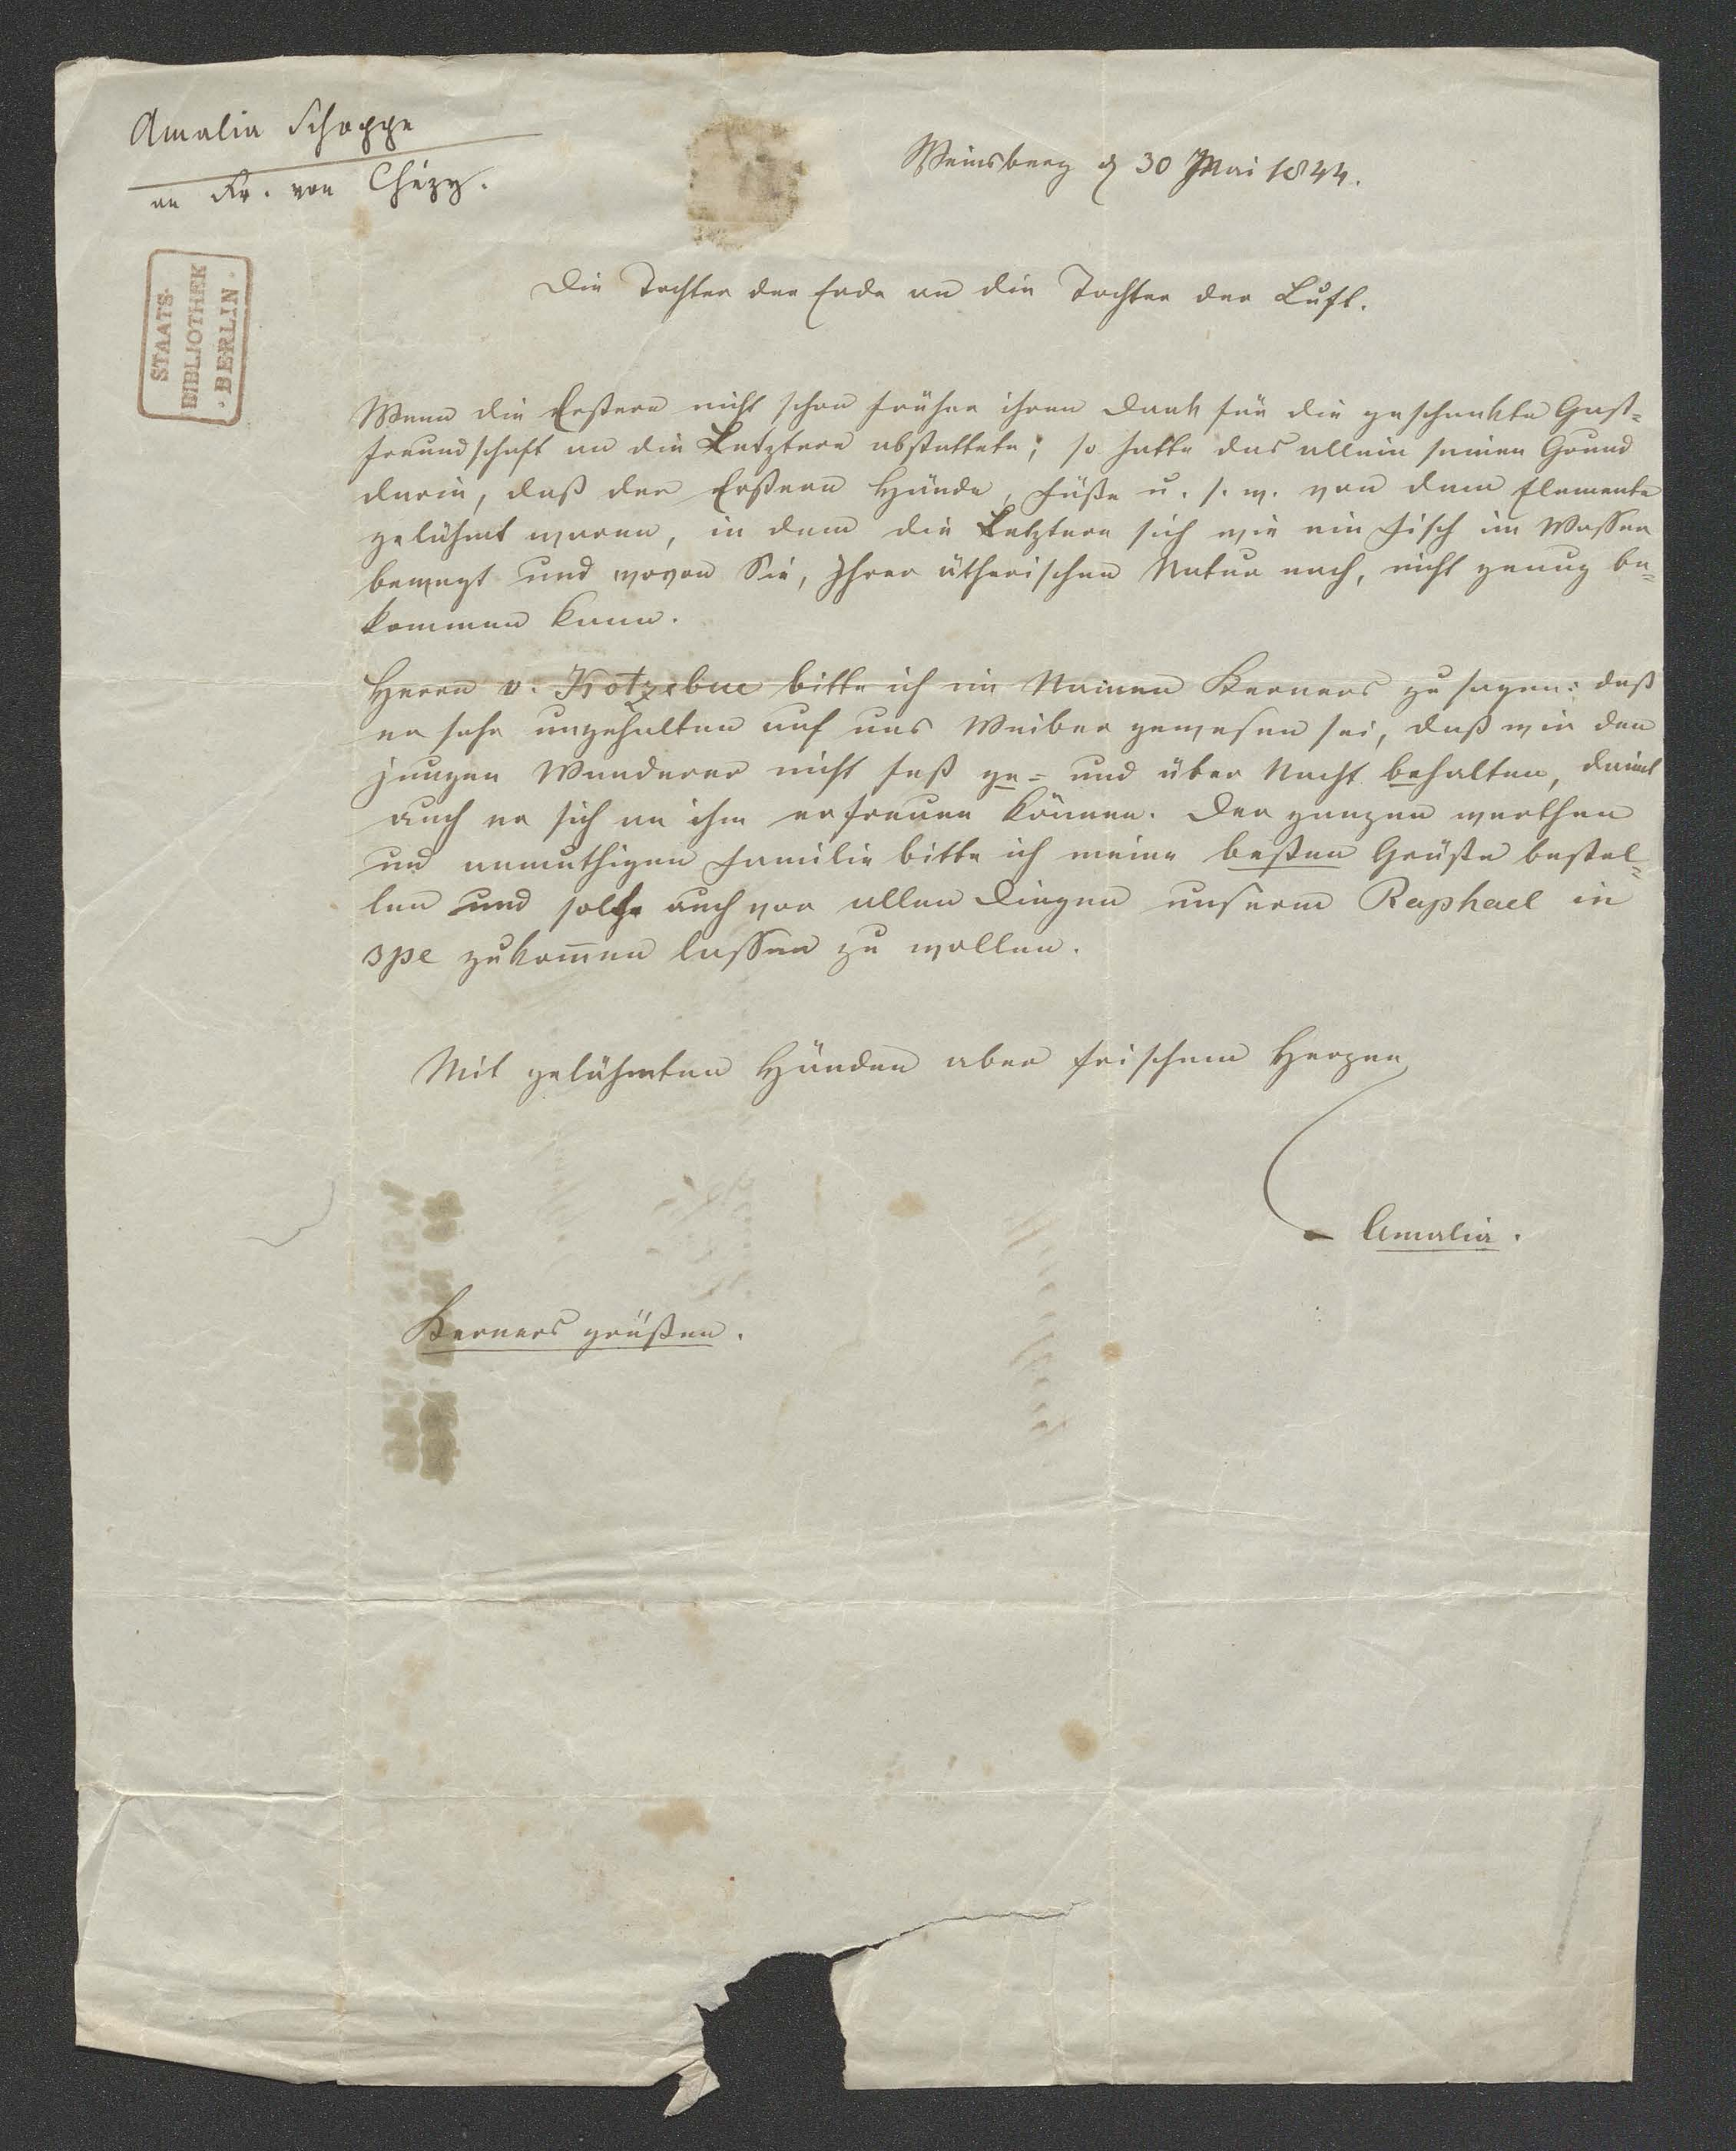 Amalia Schoppe
an Fr. von Chézy.
Weinsberg d 30 Mai 1844.
STAATS-
BIBLIOTHEK
· BERLIN ·
Die Tochter der Erde an die Tochter der Luft.
Wenn die Erstere nicht schon früher ihren Dank für die geschenkte Gast=
freundschaft an die Letztere abstattete; so hatte das allein seinen Grund
darin, daß der Erstern Hände, Füße u. s. w. von dem Elemente
gelähmt waren, in dem die Letztere sich wie ein Fisch im Wasser
bewegt und wovon Sie, Ihrer ätherischen Natur nach, nicht genug be=
kommen kann.
Herrn v. Kotzebue bitte ich im Namen Kerners zu sagen: daß
er sehr ungehalten auf uns Weiber gewesen sei, daß wir den
jungen Wanderer nicht fest ge= und über Nacht behalten, damit
auch er sich an ihm erfreuen können. Der ganzen werthen
und anmuthigen Familie bitte ich meine besten Grüße bestel=
len und solche auch vor allen Dingen unserm Raphael in
spe zukom̄en lassen zu wollen.
Mit gelähmten Händen aber frischem Herzen
Amalia.
Kerners grüßen.